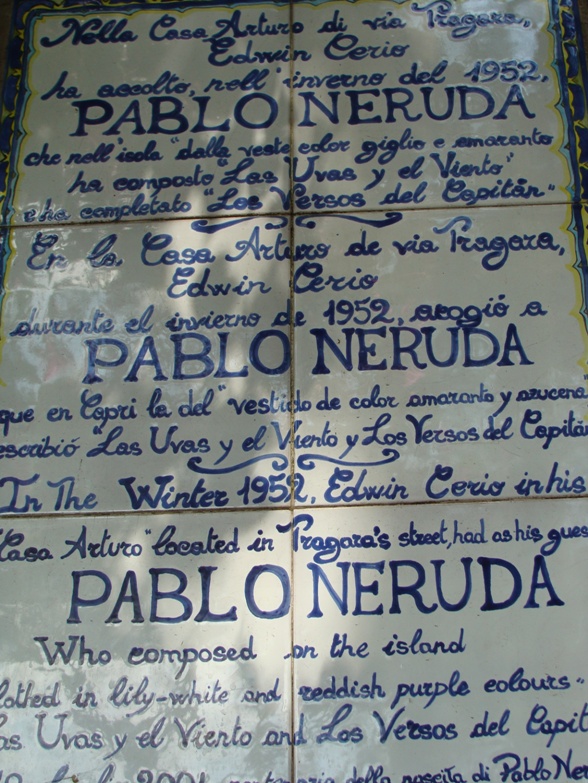 Nella Casa Arturo di via Tragara,
Edwin Cerio
ha accolto, nell' inverno del 1952,
PABLO NERUDA
che nell'isola "dalla veste color giglio e amaranto
ha composto Las Uvas y el Viento"
e ha completato "Los Versos del Capitán"
En la Casa Arturo de via Tragara,
Edwin Cerio
durante el invierno de 1952, acogió a
PABLO NERUDA
que en Capri la del "vestido de color amaranto y azucena
escribió "Las Uvas y el Viento y Los Versos del Capitán
In The Winter 1952, Edwin Cerio in his
"Casa Arturo" located in Tragara's street, had as his gues
PABLO NERUDA
Who composed on the island
lothed in lily-white and reddish purple colours"
as Uvas y el Viento and Los Versos del Capit
2004 centenario della nascita di Pablo Ne